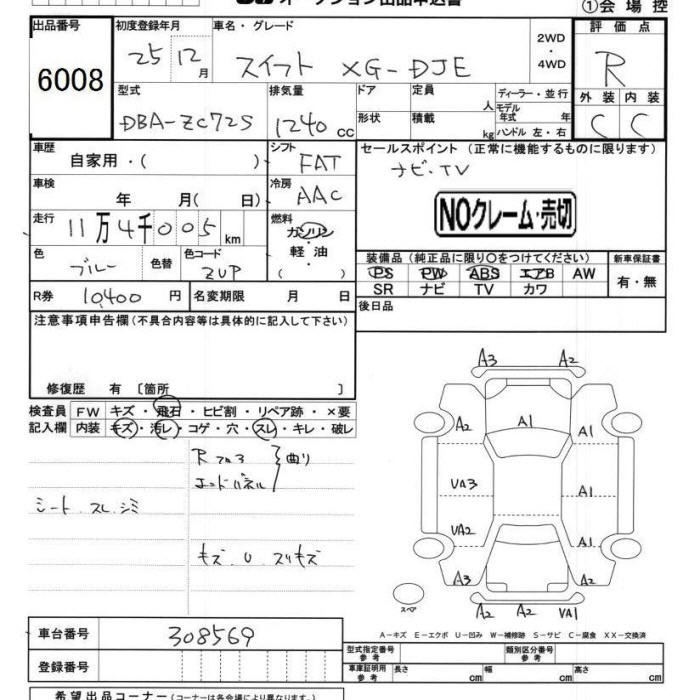 ①会場控
出品番号
6008
初度登録年月
25 12月
車名・グレード
スイフト XG-DJE
2WD
・
4WD
評価点
R
型式
DBA-ZC72S
排気量
1240 cc
ドア
形状
定員
人
積載
kg
ディーラー・並行
モデル年式 年
ハンドル 左・右
外装 内装
C C
車歴
自家用・( )
シフト
FAT
セールスポイント (正常に機能するものに限ります)
ナビ・TV
車検
年 月( 日)
冷房
AAC
NOクレーム・売切
走行
11万4千005 km
燃料
ガソリン
・
軽油
( )
色
ブルー
色替
色コード
ZUP
装備品 (純正品に限り○をつけてください)
新車保証書
PS PW ABS エアB AW
SR ナビ TV カワ
有・無
R券 10,400 円
名変期限 月 日
後日品
注意事項申告欄 (不具合内容等は具体的に記入して下さい)
修復歴 有 〔箇所 〕
検査員
記入欄
FW キズ・飛石・ヒビ割・リペア跡・×要
内装 キズ・汚レ・コゲ・穴・スレ・キレ・破レ
Rフロア
エンドパネル
曲り
シート スレ シミ
キズ U スリキズ
A3 A2
A2 A1
UA3 A1
UA2 A1
A3 A2
スペア
A2 A2 UA1
A－キズ E－エクボ U－凹み W－補修跡 S－サビ C－腐食 XX－交換済
車台番号 308569
登録番号
型式指定番号
参考
類別区分番号
参考
車庫証明用
参考
長さ cm
幅 cm
高さ cm
希望出品コーナー (コーナー名は各会場により異なります)